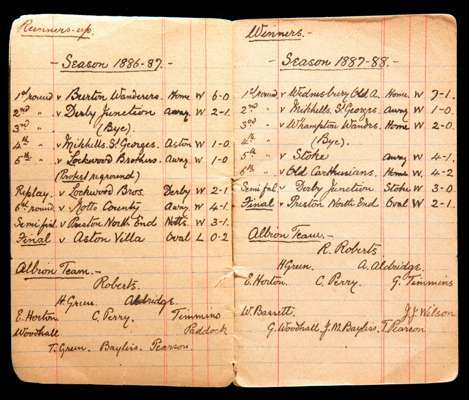 Runners-up.
- Season 1886-87. -
1st round v Burton Wanderers. Home W 6-0
2nd " v Derby Junction Away W 2-1.
3rd " (Bye).
4th " v Mitchells St Georges. Aston W 1-0
5th " v Lockwood Brothers. Away W 1-0
(Protest reground)
Replay v Lockwood Bros. Derby W 2-1
6th round v Notts County Away W 4-1
Semi final v Preston North End Notts. W 3-1.
Final v Aston Villa Oval L 0-2
Albion Team.-
Roberts.
H Green Aldridge.
E. Horton C. Perry. Timmins
Woodhall Paddock
T. Green. Bayliss. Pearson.
Winners.-
- Season 1887-88. -
1st round v Wednesbury Old A. Home W 7-1.
2nd " v Mitchells St Georges Away W 1-0
3rd " v W'hampton Wanders. Home W 2-0.
4th " (Bye).
5th " v Stoke Away W 4-1,
6th " v Old Carthusians. Home W 4-2
Semi final v Derby Junction Stoke W 3-0
Final v Preston North End Oval W 2-1.
Albion Team.-
R. Roberts
H Green. A. Aldridge.
E. Horton. C. Perry. G. Timmins
W. Bassett. J. J. Wilson
G. Woodhall J. M. Bayliss. T. Pearson